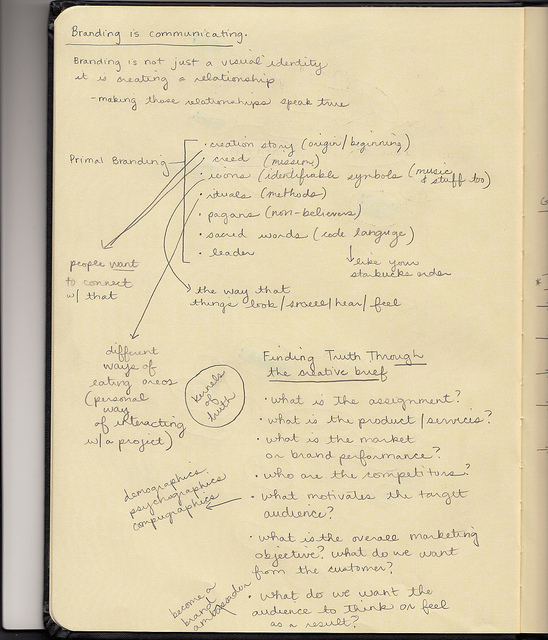 Branding is communicating.
Branding is not just a visual identity
it is creating a relationship
-making those relationships speak true
Primal Branding
• creation story (origin/beginning)
• creed (mission)
• icons (identifiable symbols (music
& stuff too)
• rituals (methods)
• pagans (non-believers)
• sacred words (code language)
• leader
like your
starbucks order
people want
to connect
w/ that
the way that
things look/smell/hear/feel
different
ways of
eating oreos
(personal
way
of interacting
w/a project)
kernels
of
truth
Finding Truth Through
the creative brief
• what is the assignment?
• what is the product/services?
• what is the market
or brand performance?
• who are the competitors?
• what motivates the target
audience?
demographics
psychographics
compugraphics
• what is the overall marketing
objective? what do we want
from the customer?
• what do we want the
audience to think or feel
as a result?
become a
brand
ambassador